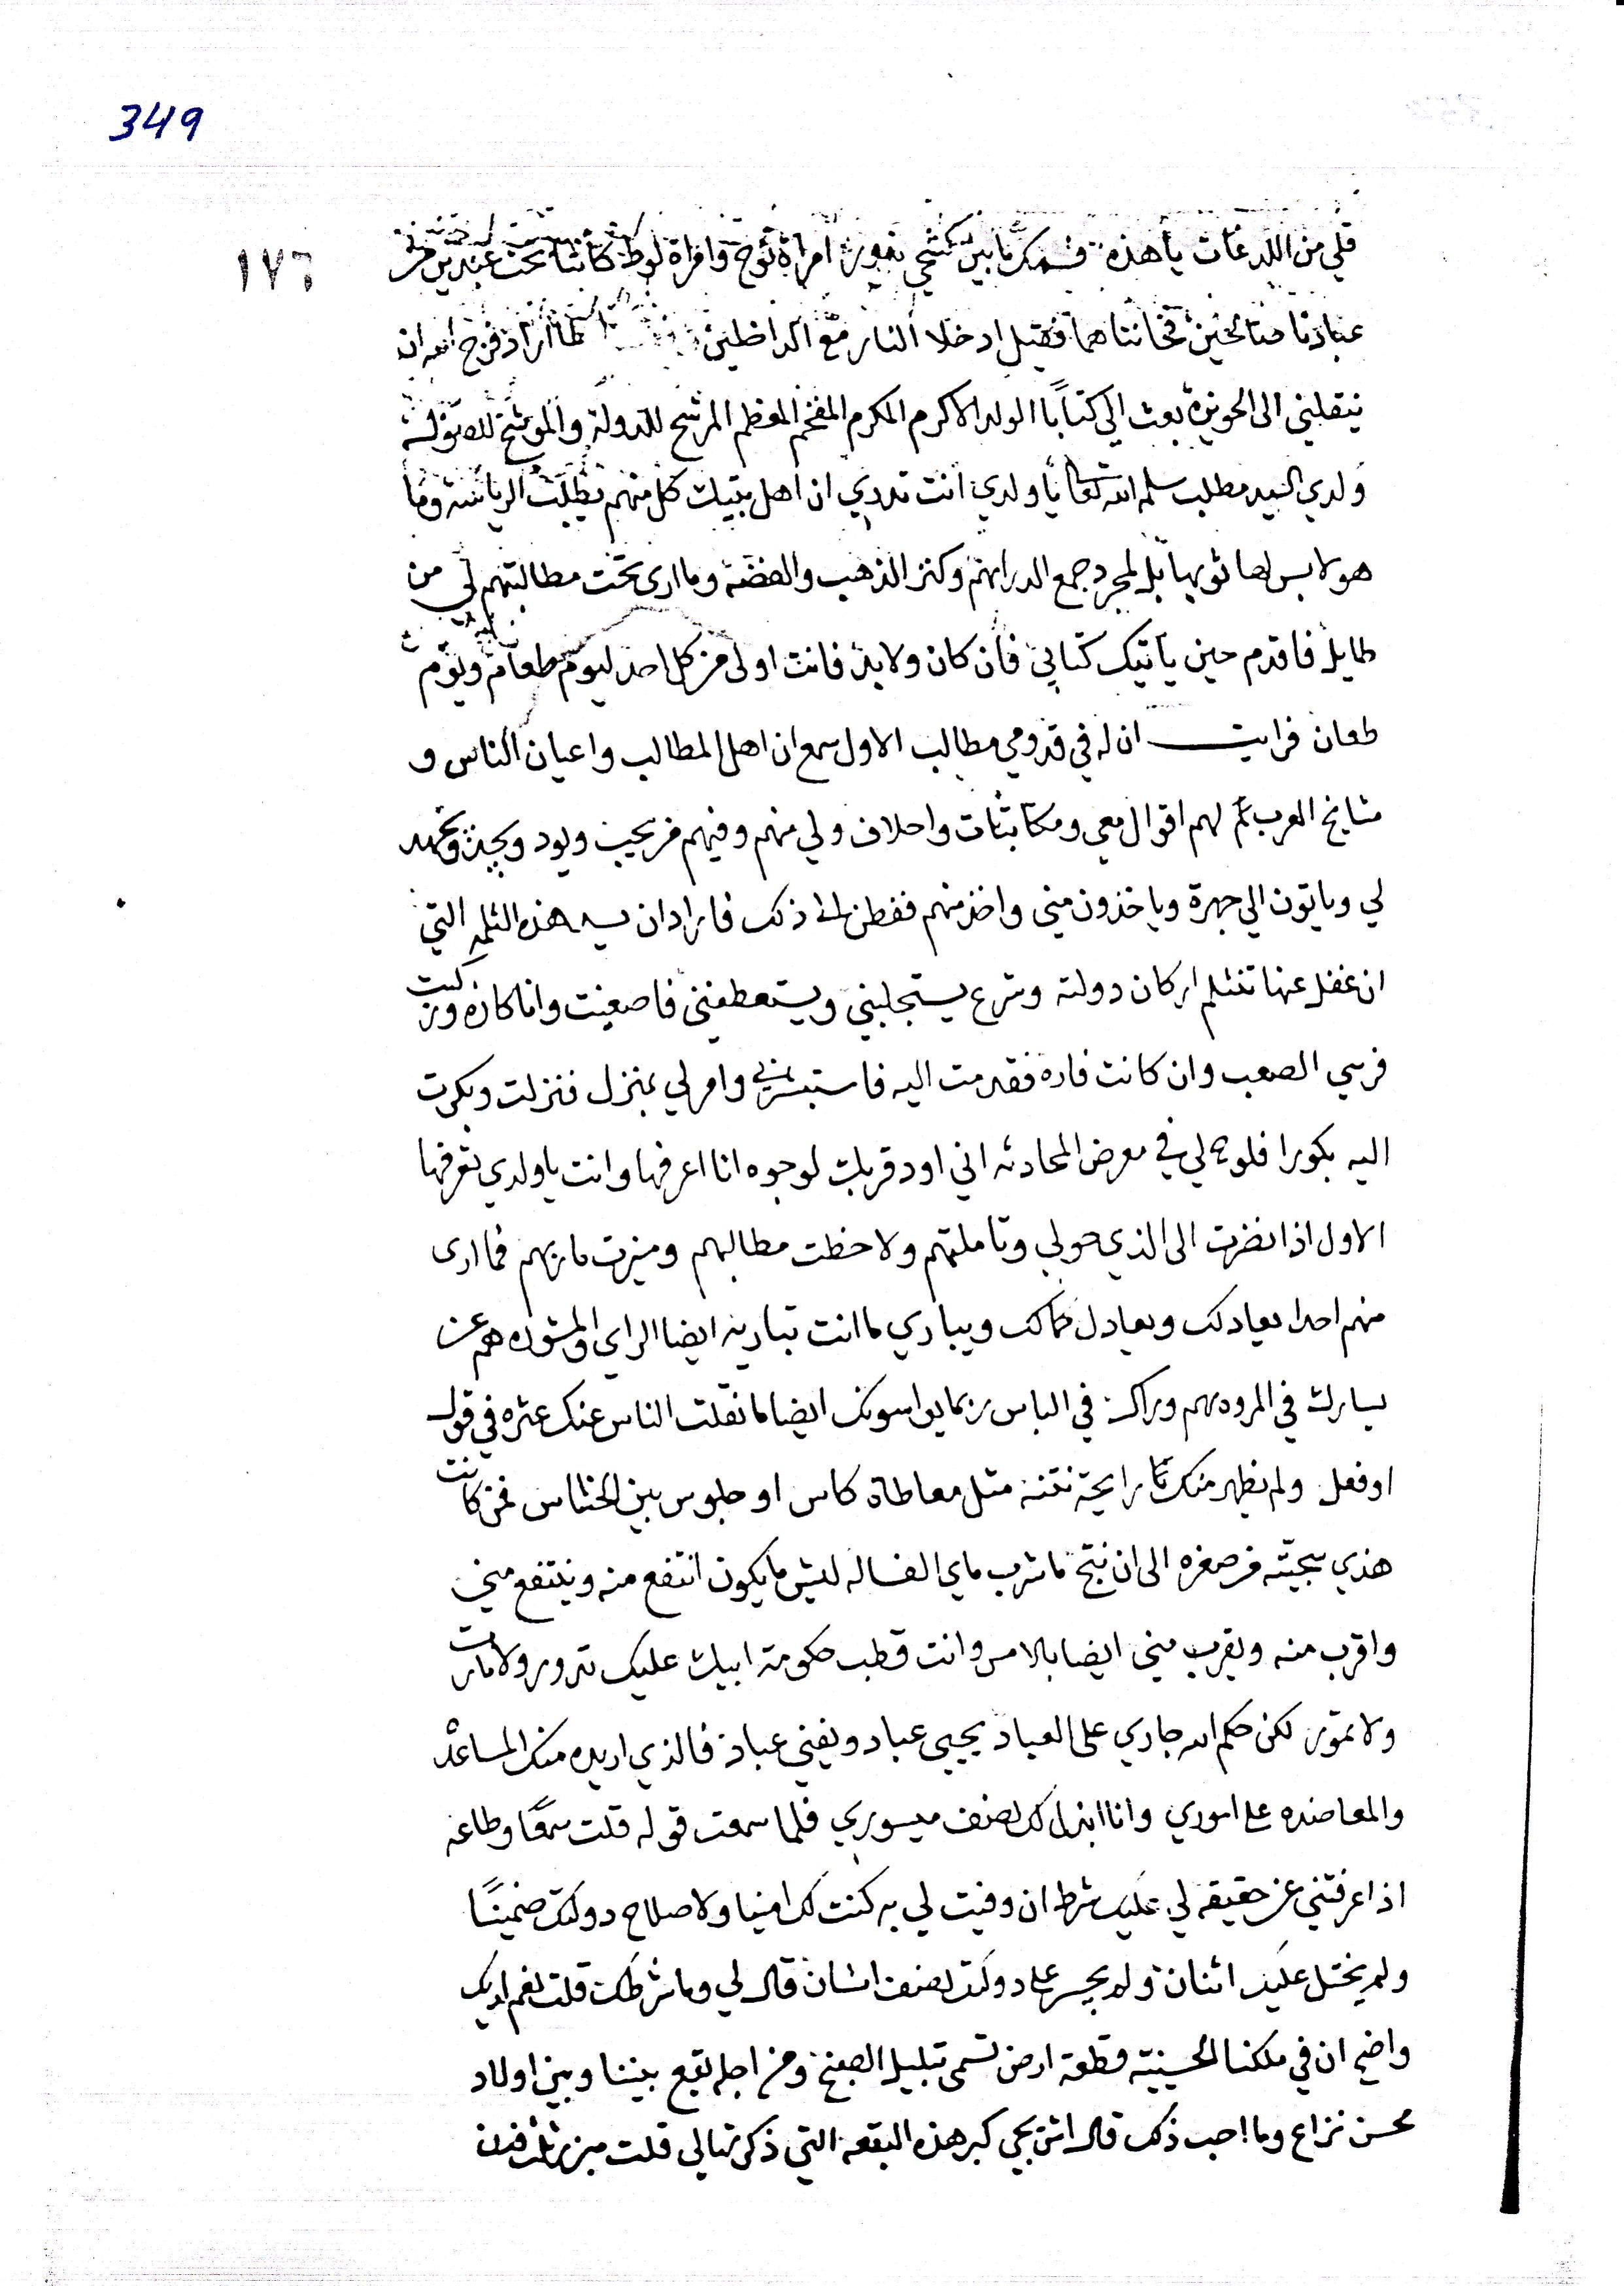 349
١٧٦
قلبي من اللدغات يا هذه فسمك ما بين كشحي يفور امراة نوح وامراة لوط كانتا تحت عبدين من
عبادنا صالحين فخانتاهما فقيل ادخلا النار مع الداخلين لما اراد فرج الله ان
ينقلني الى الحويزة بعث الي كتاباً الولد الاكرم المكرم المفخم المعظم المرشح للدولة والموشح للصولة
ولدي السيد مطلب سلمه الله تعالى يا ولدي انت تدري ان اهل بيتك كل منهم يطلب الرياسة وما
هو لابس لها ثوبها بل لمجرد جمع الدراهم وكنز الذهب والفضة وما ارى تحت مطالبتهم لي من
طايل فاقدم حين ياتيك كتابي فان كان ولا بد فانت اولى من كل احد ليوم طعام ويوم
طعان فرايت ان له في قدومي مطالب الاول سمع ان اهل المطالب واعيان الناس و
مشايخ العرب لهم اقوال معي ومكاتبات واحلاف ولي منهم وفيهم من يحب ويود ويجد ويجهد
لي وياتون الي جهرة وياخذون مني واخذ منهم ففطن الى ذلك فاراد ان يسد هذه الثلمه التي
ان غفل عنها تنثلم اركان دولته وشرع يستجلبني ويستعطفني فاصغيت وانا كاره وركبت
فرسي الصعب وان كانت فاره فقدمت اليه فاستبشر بي وامر لي بمنزل فنزلت وبكرت
اليه بكورا فلوح لي في معرض المحادثه اني اود قربك لوجوه انا اعرفها وانت يا ولدي تعرفها
الاول اذا نضرت الى الذي حولي وتاملتهم ولاحظت مطالبهم وميزت ماربهم فما ارى
منهم احدا يعادلك ويعادل كمالك ويباري ما انت تباريه ايضا الراي والمشوره هم عن
يسارك في المروه وراك في الباس ربما يواسونك ايضا ما نقلت الناس عنك عثره في قول
او فعل ولم يظهر منك رايحة نتنه مثل معاطاة كاس او جلوس بين الخناس فمن كانت
هذي سجيته من صغره الى ان نتج ما شرب ماي الغساله ليش ما يكون انتفع منه وينتفع مني
واقرب منه ويقرب مني ايضا بالامس وانت قطب حكومة ابيك عليك تدور ولا مارت
ولا تمور لكن حكم الله جاري على العباد يحيي عباد ويفني عباد فالذي اريده منك المساعده
والمعاضده على اموري وانا ابذل لك نصف ميسوري فلما سمعت قوله قلت سمعاً وطاعه
اذا عرفتني عن حقيقه لي عليك شرط ان وفيت لي به كنت لك امينا ولاصلاح دولتك ضميناً
ولم يختل عليك اثنان ولم يجسر على دولتك نصف انسان قال لي وما شرطك قلت نعم لديك
واضح ان في ملكنا الحسينيه قطعة ارض تسمى تبليل الصبخ ومن اجله تقع بيننا وبين اولاد
محسن نزاع وما احب ذلك قال اش يجي كبر هذه البقعه التي ذكرتها لي قلت مبزر ثلث فدن